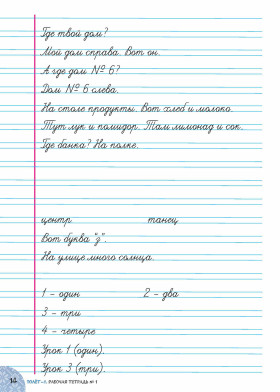 Где твой дом?
Мой дом справа. Вот он.
А где дом № 6?
Дом № 6 слева.
На столе продукты. Вот хлеб и молоко.
Тут лук и помидор. Там лимонад и сок.
Где банка? На полке.
центр танец
Вот буква "ц".
На улице много солнца.
1 - один 2 - два
3 - три
4 - четыре
Урок 1 (один).
Урок 3 (три).
14 РАБОЧАЯ ТЕТРАДЬ № 1